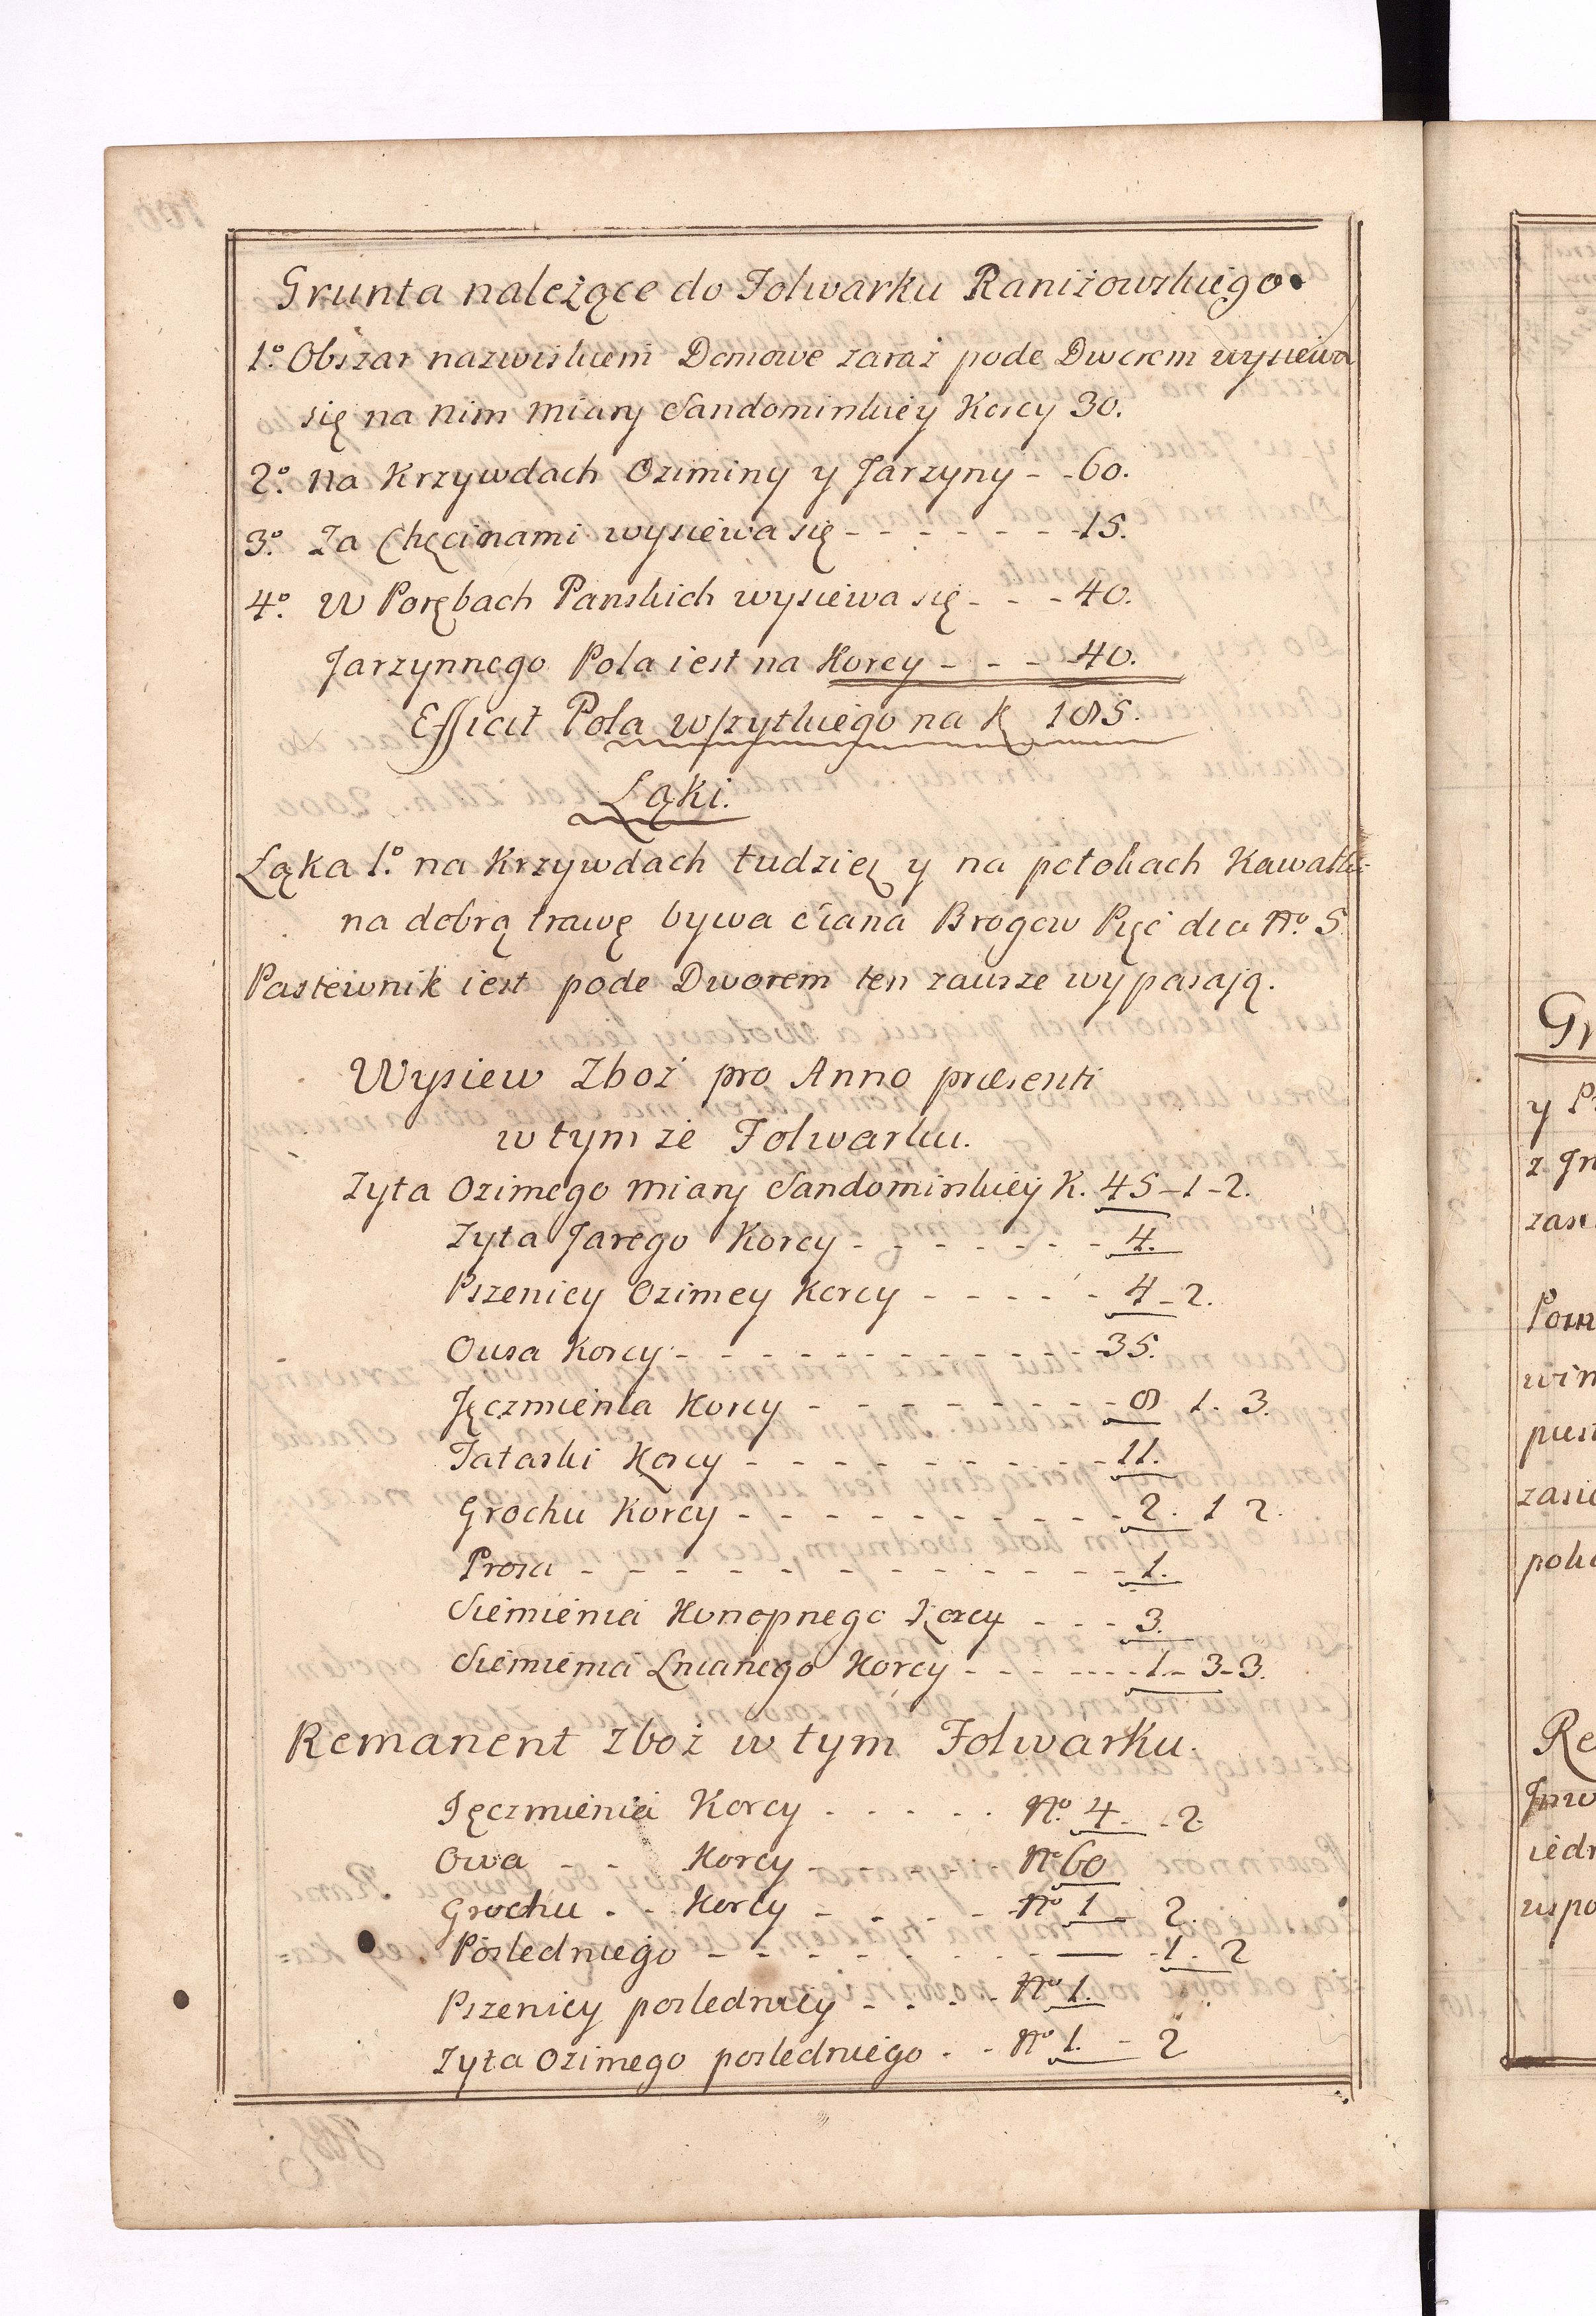 Grunta należące do Folwarku Raniżowskiego.
1º. Obszar nazwiskiem Domowe zaraz pode Dworem wysiewa
się na nim miary Sandomirskiey Korcy 30.
2º. na Krzywdach Oziminy y Jarzyny - - 60.
3º. Za Chęcinami wysiewa się - - - - - - - 15.
4º. W Porębach Panskich wysiewa się - - - 40.
Jarzynnego Pola iest na Korcy - - - 40.
Efficit Pola wszytkiego na K 185.
Łąki.
Łąka 1º. na Krzywdach tudziez y na potokach Kawałki
na dobrą trawę bywa siana Brogow Pięć dico Nº. 5
Pastewnik iest pode Dworem ten zawsze wypasają.
Wysiew Zboż pro Anno præsenti
w tym że Folwarku.
Zyta Ozimego miary Sandomirskiey K. 45 - 1 - 2.
Zyta Jarego Korcy - - - - - - - 4.
Pszenicy Ozimey Korcy - - - - - 4 - 2.
Owsa Korcy - - - - - - - - - - - - 35.
Jęczmienia Korcy - - - - - - - - - 8 1. 3.
Tatarki Korcy - - - - - - - - - - 11.
Grochu Korcy - - - - - - - - - - - 2. 1 2.
Prosa - - - - - - - - - - - - - - 1.
Siemienia Konopnego Korcy - - - 3.
Siemienia Lnianego Korcy - - - - - - - 1 - 3 - 3.
Remanent Zboż w tym Folwarku.
Jęczmienia Korcy - - - - - Nº. 4 - - 2.
Owa - - Korcy - - - - - Nº 60
Grochu - - Korcy - - - - - Nº 1 2.
Posledniego - - - - - - - - — - 1 - 2
Pszenicy posledniey - - - - - Nº 1.
Zyta Ozimego posledniego - - Nº 1. - 2